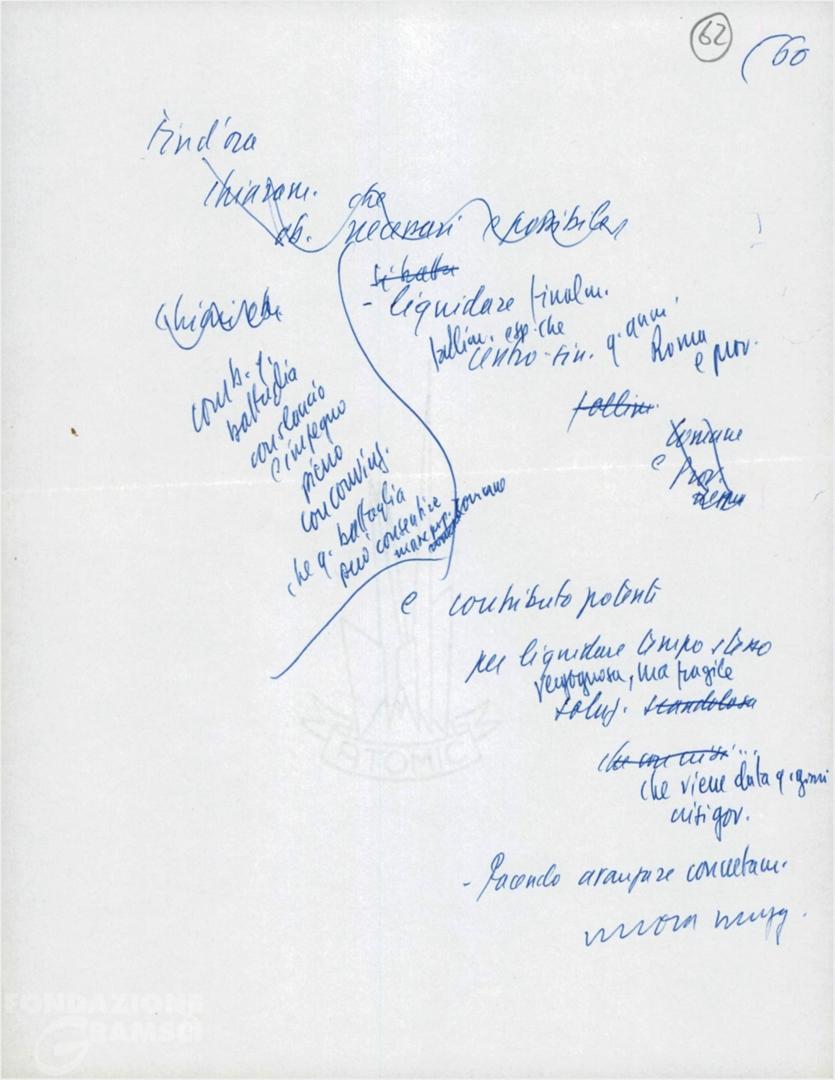 62
60
Fin d'ora
chiaram. che
ob. necessari e possibile
si batta
- liquidare finalm.
fallim. esp. che
centro-sin. q. anni
Roma
e prov.
fallim.
Comune
e Prov.
comb. q.
battaglia
con slancio
e impegno
pieno
con convinz.
che q. battaglia
può consentire
romano
e contributo potente
per liquidare tempo stesso
vergognosa, ma fragile
soluz. scandolosa
che viene data q. giorni
crisi gov.
- Facendo avanzare concretam.
nuova magg.
ATOMIC
FONDAZIONE
GRAMSCI